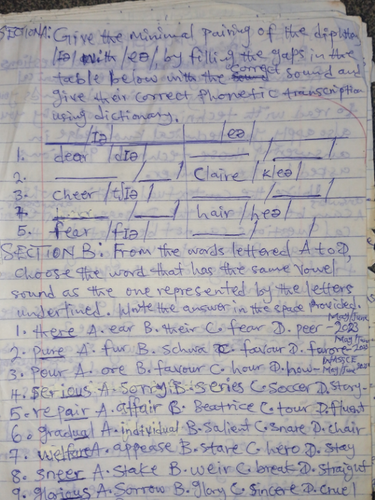 SECTION A: Give the minimal pairing of the diphthon
/ɪə/ with /eə/ by filling the gaps in the
table below with the correct sound and
give their correct phonetic transcription
using dictionary.
/ɪə/ /eə/
1. dear /dɪə/
2. Claire /kleə/
3. cheer /tʃɪə/
4. hair /heə/
5. fear /fɪə/
SECTION B: From the words lettered A to D,
choose the word that has the same vowel
sound as the one represented by the letters
underlined. Write the answer in the space provided.
May/June
1. There A. ear B. their C. fear D. peer - 2023
May/June
2. pure A. fur B. Schwa C. favour D. furore - 2013
WASSCE
3. Pour A. ore B. favour C. hour D. how - May/June
4. serious A. Sorry B. series C. Soccer D. story -
5. repair A. affair B. Beatrice C. tour D. fluent
6. gradual A. individual B. Salient C. Snare D. chair
7. welfare A. appease B. stare C. hero D. stay
8. sneer A. stake B. weir C. break D. straight
9. glorious A. Sorrow B. glory C. sincere D. cruel